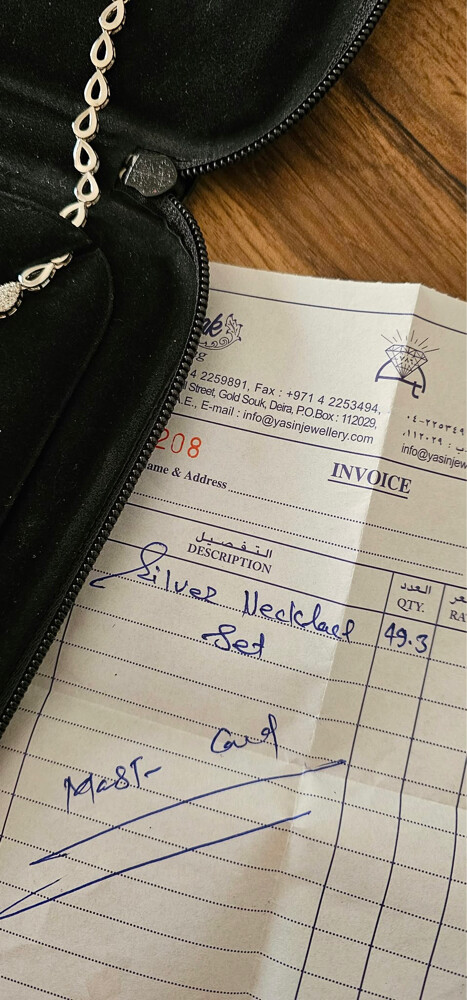 4 2259891, Fax : +971 4 2253494,
Street, Gold Souk, Deira, P.O.Box : 112029,
.E., E-mail : info@yasinjewellery.com
٠٤-٢٢٥٣٤٩
١١٢٠٢٩ :
info@yasinjew
208
ame & Address
INVOICE
التفصيل
DESCRIPTION
العدد
QTY.
RA
Silver Necklace
49.3
Set
Mast- Card